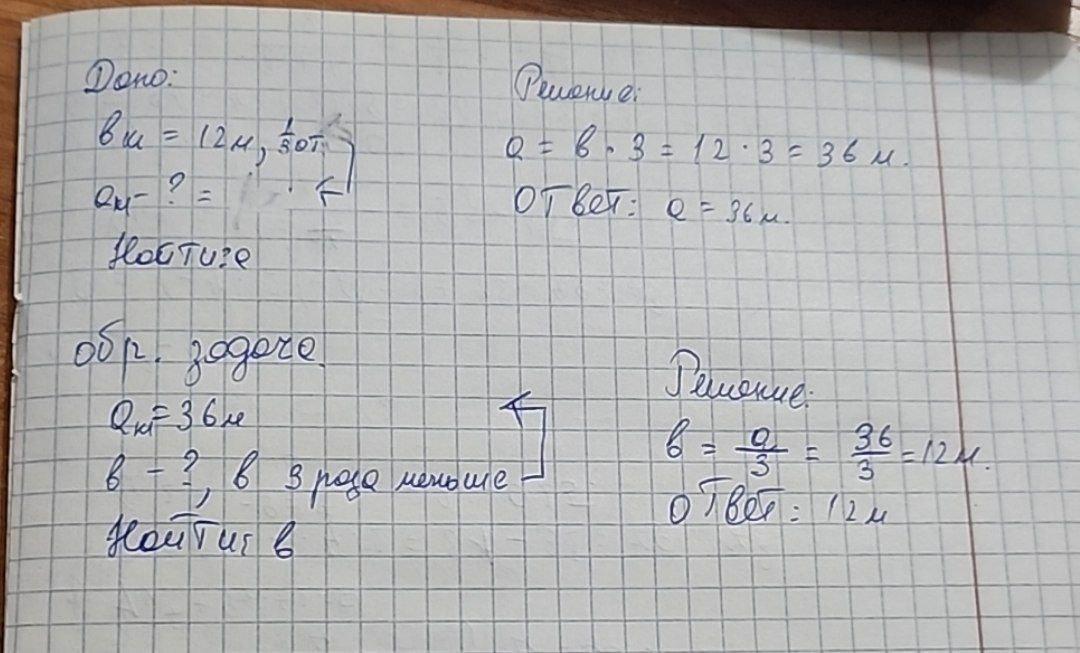 Дано:
вм = 12м, 1/3 от
ам - ? =
Найти: а
Решение:
а = в · 3 = 12 · 3 = 36 м.
Ответ: а = 36м.
обр. задача
ам = 36м
в - ?, в 3 раза меньше
Найти: в
Решение:
в = а/3 = 36/3 = 12м.
Ответ: 12м